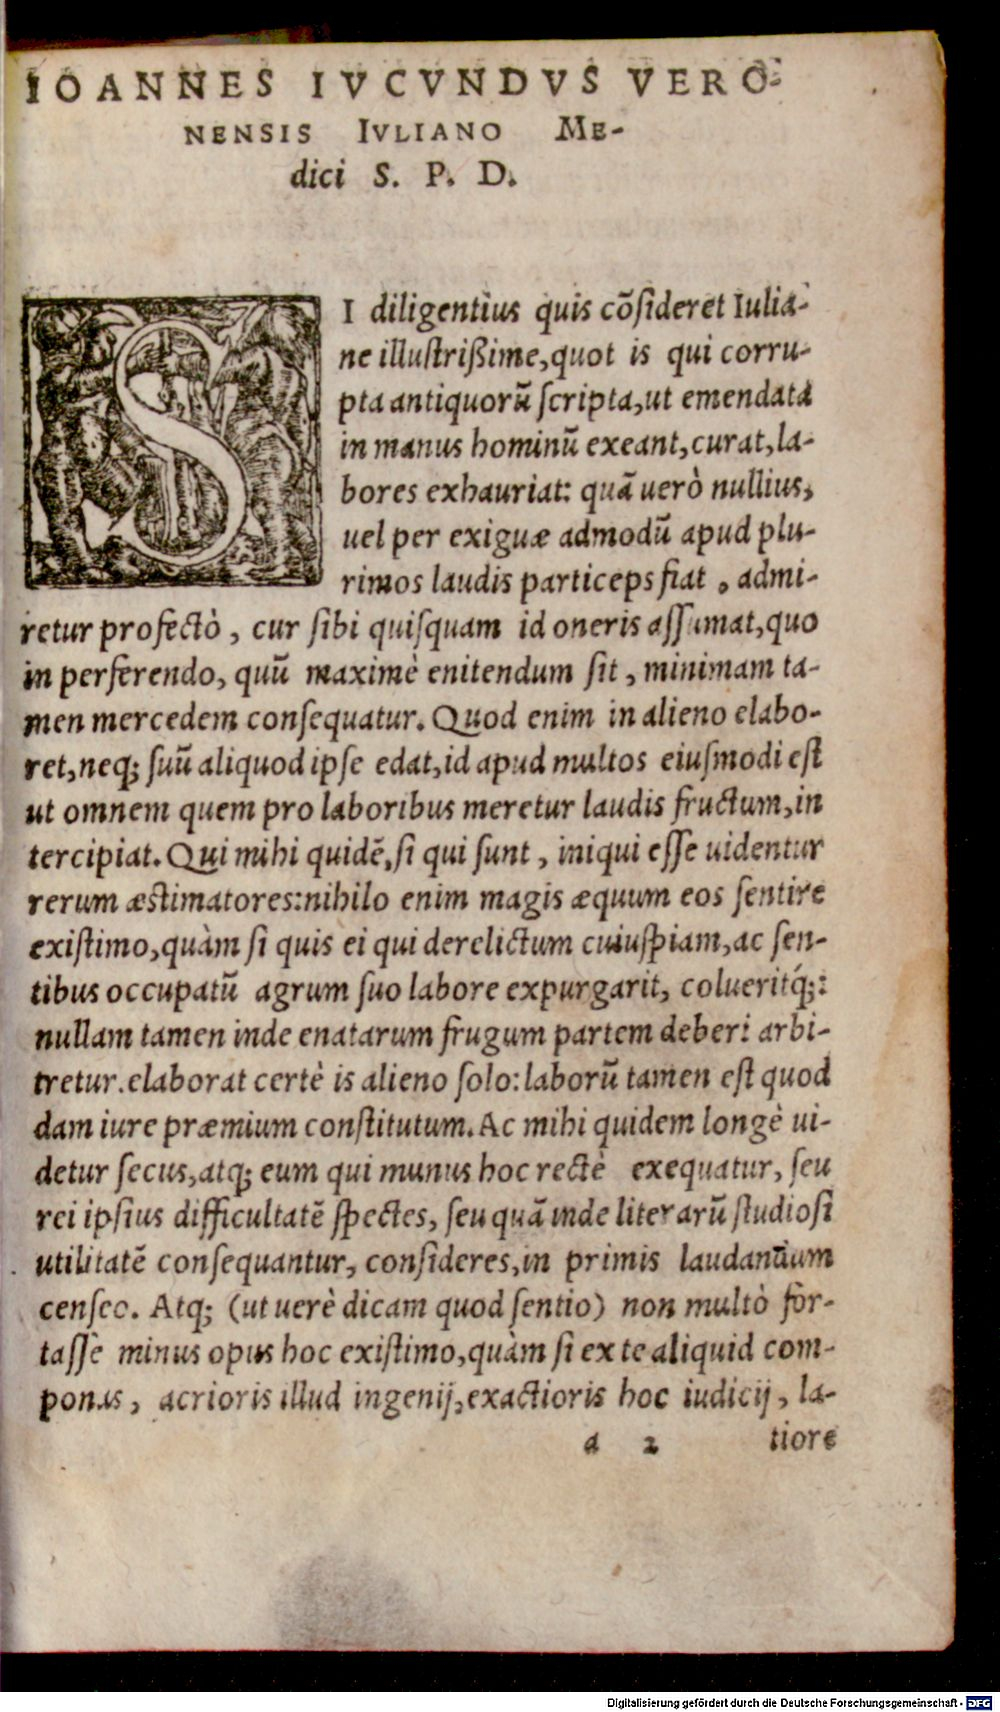 IOANNES IVCVNDVS VERO-
NENSIS IVLIANO ME-
dici S. P. D.
SI diligentius quis cõſideret Iulia-
ne illuſtrißime, quot is qui corru-
pta antiquorũ ſcripta, ut emendata
in manus hominũ exeant, curat, la-
bores exhauriat: quã uerò nullius,
uel per exiguæ admodũ apud plu-
rimos laudis particeps fiat, admi-
retur profectò, cur ſibi quiſquam id oneris aſſumat, quo
in perferendo, quũ maximè enitendum ſit, minimam ta-
men mercedem conſequatur. Quod enim in alieno elabo-
ret, neq; ſuũ aliquod ipſe edat, id apud multos eiuſmodi eſt
ut omnem quem pro laboribus meretur laudis fructum, in
tercipiat. Qui mihi quidẽ, ſi qui ſunt, iniqui eſſe uidentur
rerum æſtimatores: nihilo enim magis æquum eos ſentire
exiſtimo, quàm ſi quis ei qui derelictum cuiuſpiam, ac ſen-
tibus occupatũ agrum ſuo labore expurgarit, colueritq́;:
nullam tamen inde enatarum frugum partem deberi arbi-
tretur. elaborat certè is alieno ſolo: laborũ tamen eſt quod
dam iure præmium conſtitutum. Ac mihi quidem longè ui-
detur ſecus, atq; eum qui munus hoc rectè exequatur, ſeu
rei ipſius difficultatẽ ſpectes, ſeu quã inde literarũ ſtudioſi
utilitatẽ conſequantur, conſideres, in primis laudandum
cenſeo. Atq; (ut uerè dicam quod ſentio) non multò for-
taſſè minus opus hoc exiſtimo, quàm ſi ex te aliquid com-
ponas, acrioris illud ingenij, exactioris hoc iudicij, la-
a 2 tiore
Digitalisierung gefördert durch die Deutsche Forschungsgemeinschaft - DFG